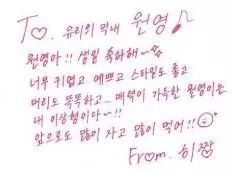 To. 유리의 막내 원영♪
원영아!! 생일 축하해~
너무 귀엽고 예쁘고 스타일도 좋고
머리도 똑똑하고... 매력이 가득한 원영이는
내 이상형이다~!!
앞으로도 많이 자고 많이 먹어!!
From. 히짱